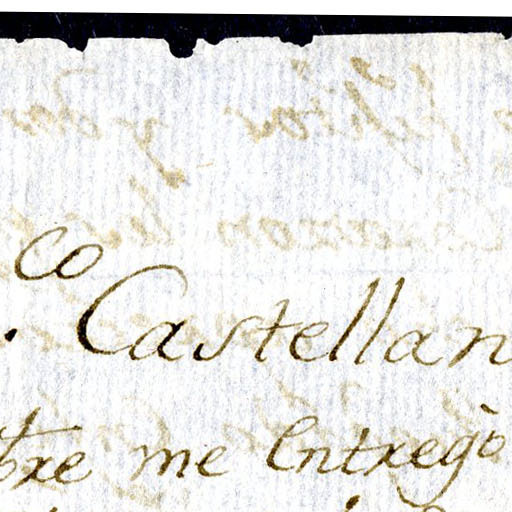 co
. Castellan
bre me Entregò